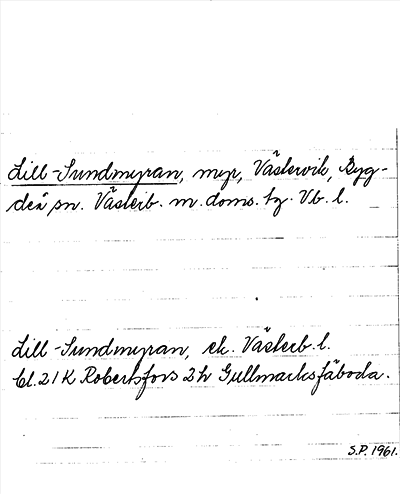 Lill-Sundmyran, myr, Västervik, Byg-
deå sn. Västerb. m. doms. tg. Vb. l.
Lill-Sundmyran, ek. Västerb. l.
bl. 21K Robertsfors 2h Gullmarksfäboda.
S.P. 1961.